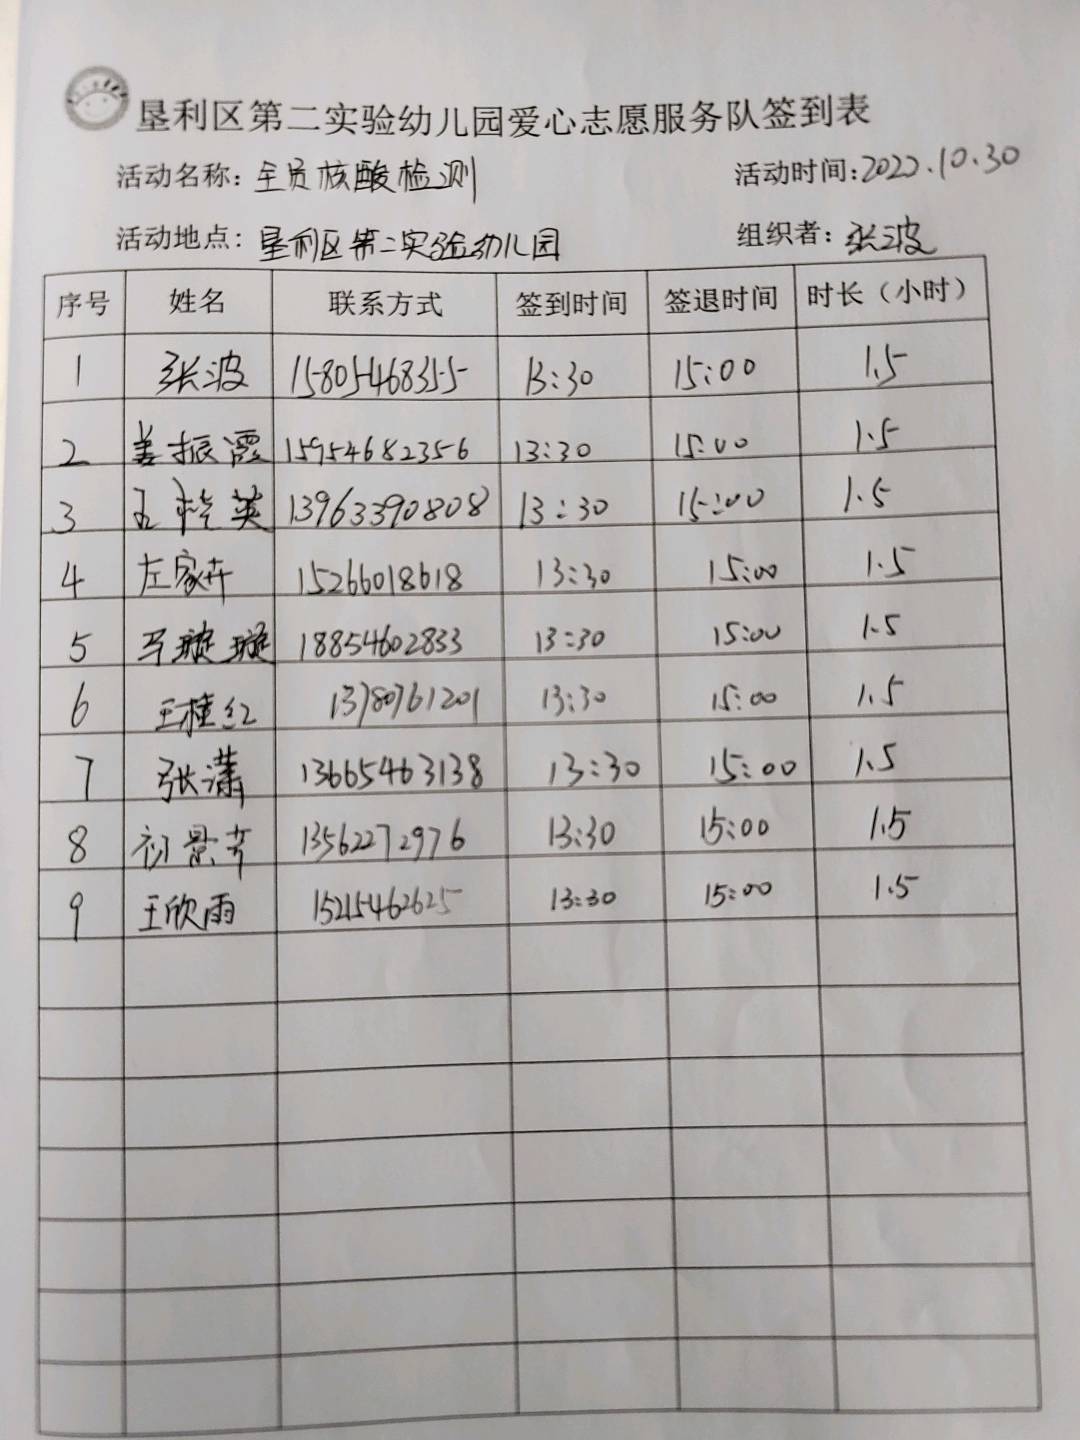 垦利区第二实验幼儿园爱心志愿服务队签到表
活动名称：全员核酸检测 活动时间：2022.10.30
活动地点：垦利区第二实验幼儿园 组织者：张波
序号 姓名 联系方式 签到时间 签退时间 时长（小时）
1 张波 15805468355 13:30 15:00 1.5
2 姜振霞 15954682356 13:30 15:00 1.5
3 英 13963390808 13:30 15:00 1.5
4 左家卉 15266018618 13:30 15:00 1.5
5 璇璇 18854602833 13:30 15:00 1.5
6 王 红 13780761201 13:30 15:00 1.5
7 张潇 13665463138 13:30 15:00 1.5
8 初景 13562272976 13:30 15:00 1.5
9 王欣雨 15215462625 13:30 15:00 1.5